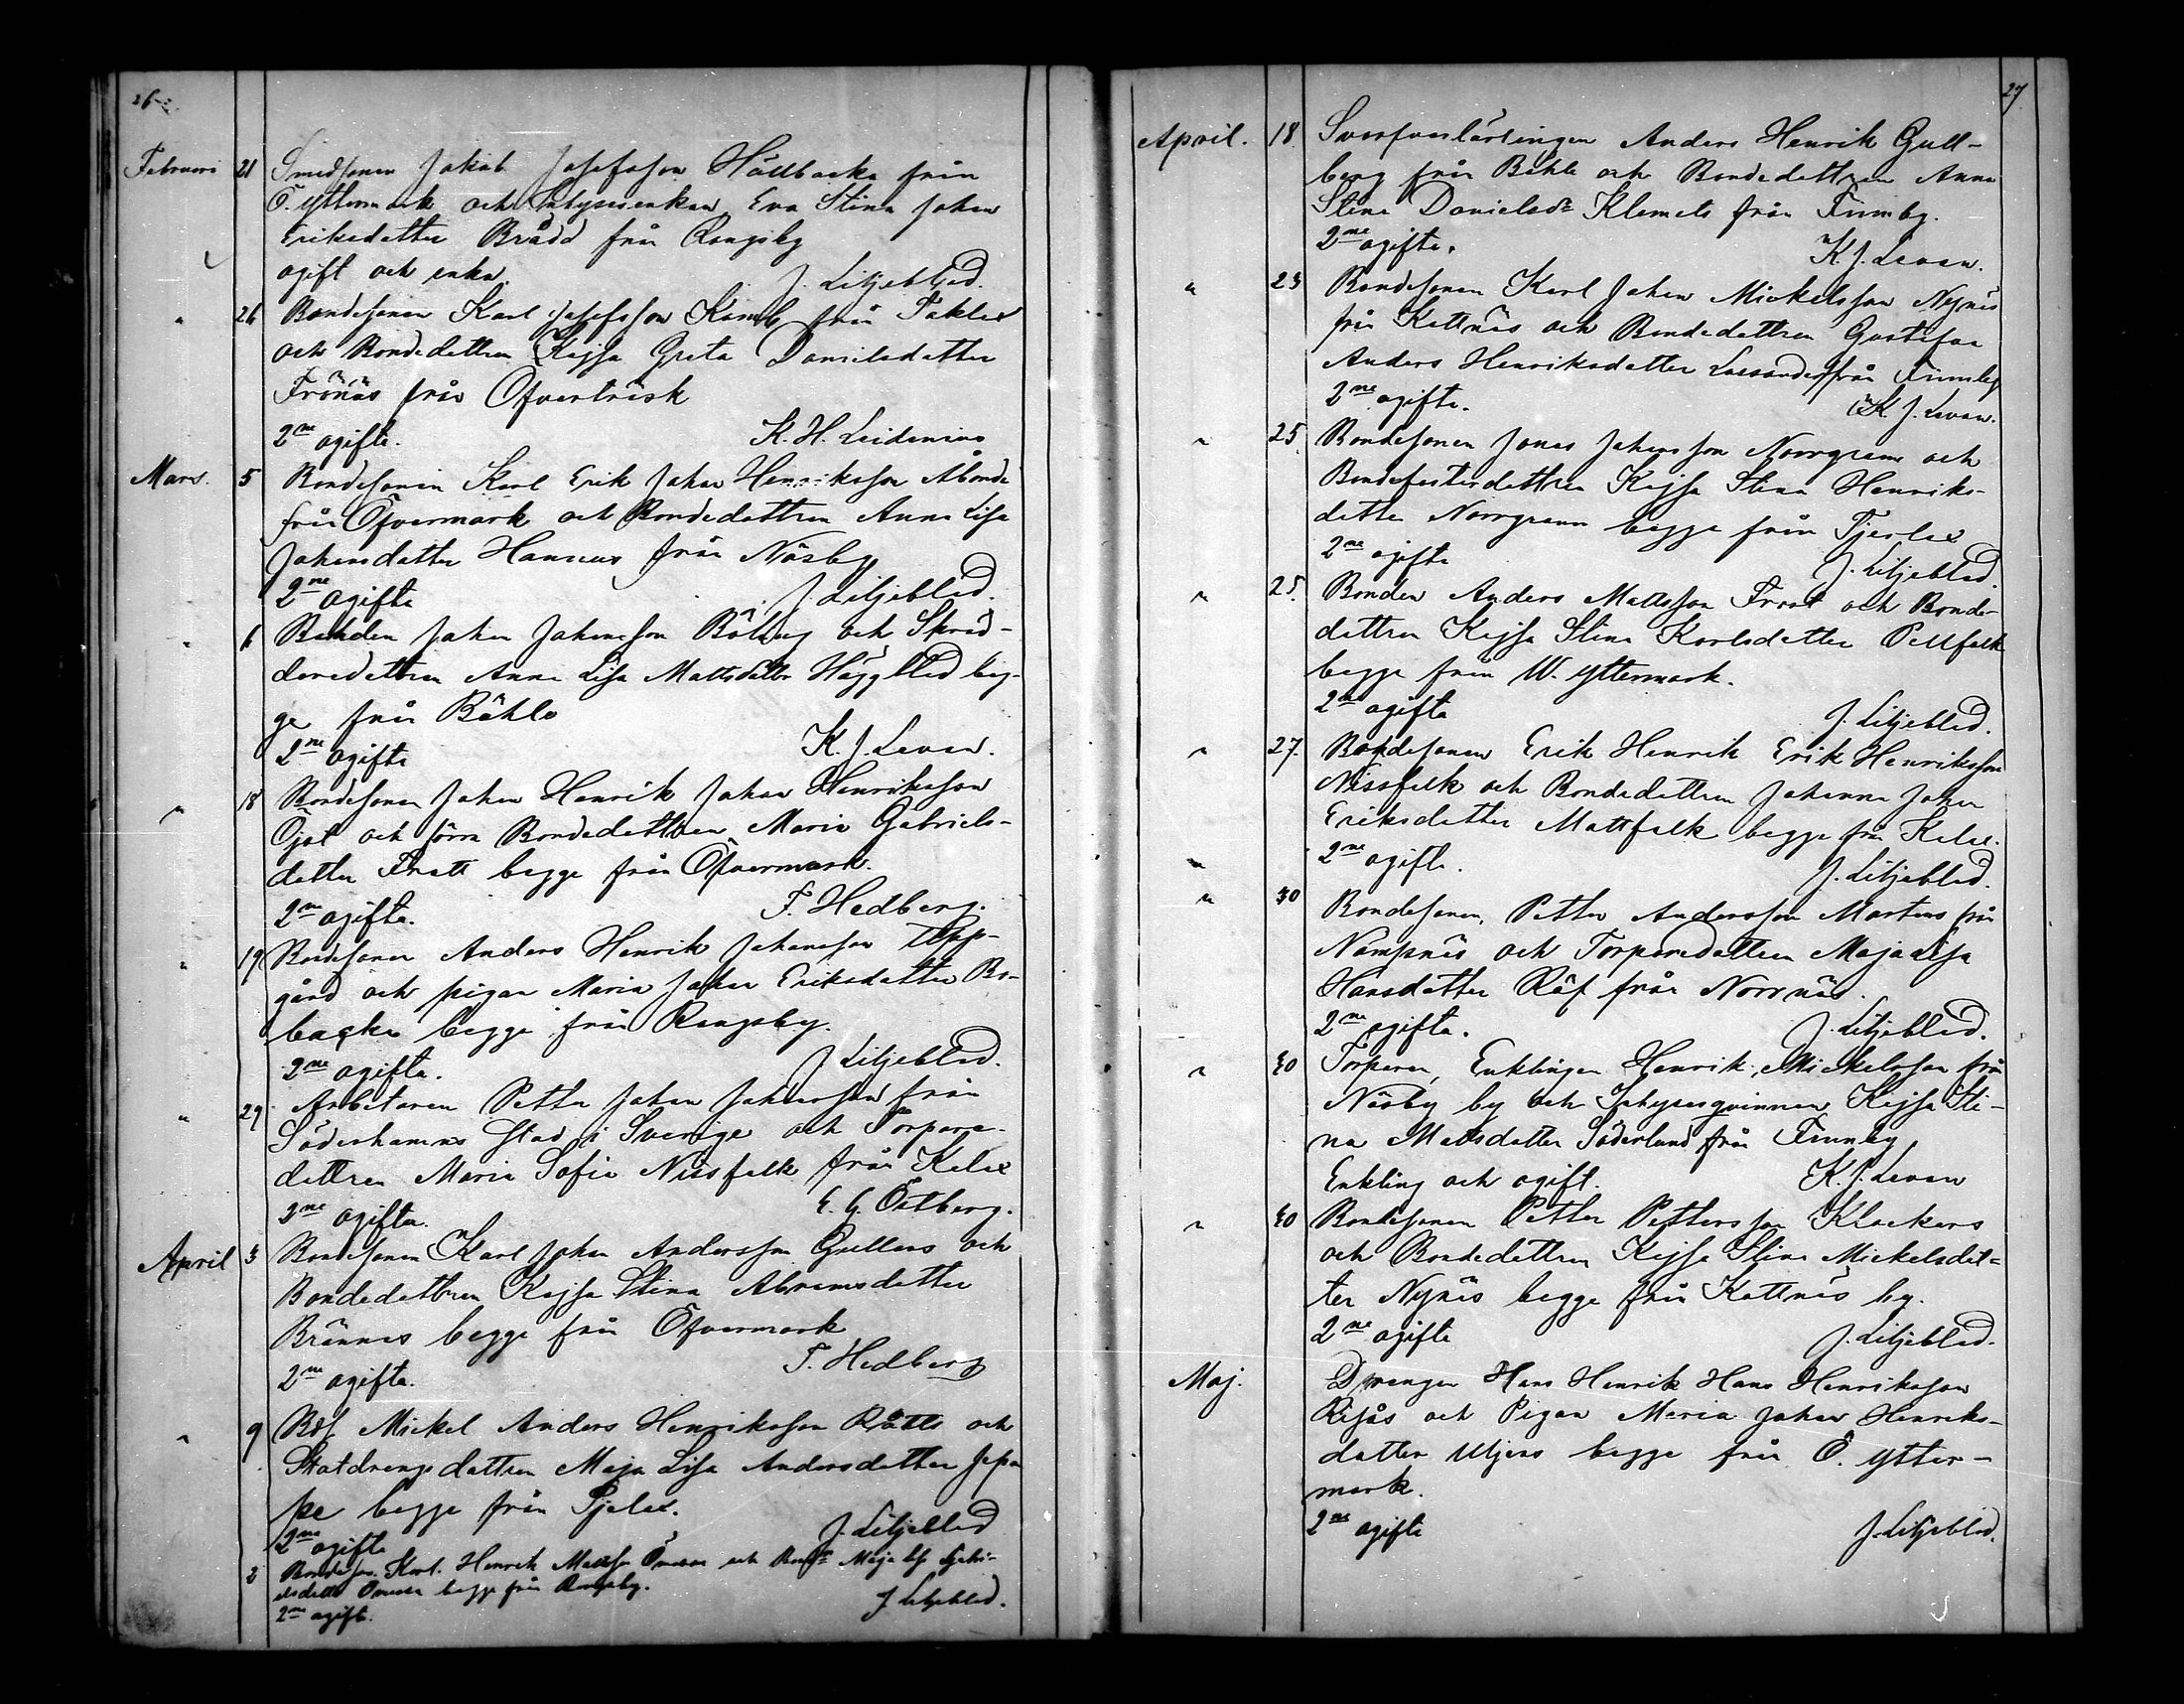 26
Februari 21 Smedsonen Jakob Josefsson Hällbacka från
Ö. Yttermark och Inhysesenkan Eva Stina Johan
Eriksdotter Brådd från Rangsby
ogift och enka. J. Liljeblad.
" 26 Bondesonen Karl Josefsson Kamb från Taklax
och Bondedottren Kajsa Greta Danielsdotter
Frönäs från Öfverträsk
2ne ogifta. K. H. Leidenius
Mars. 5 Bondesonen Karl Erik Johan Henriksson Åbonde
från Öfvermark och Bondedottren Anna Lisa
Johansdotter Hannus från Näsby
2ne ogifta J. Liljeblad.
" 6 Bonden Johan Johansson Böling och Skräd-
daredottren Anna Lisa Mattsdotter Häggblad beg-
ge från Böhle
2ne ogifta K. J. Levan.
" 18 Bondesonen Johan Henrik Johan Henriksson
Öjst och förra Bondedottren Maria Gabriels-
dotter Fratt begge från Öfvermark.
2ne ogifta. F. Hedberg.
" 19 Bondesonen Anders Henrik Johansson Upp-
gård och pigan Maria Johan Eriksdotter Bo-
backa begge från Rangsby.
2ne ogifta. J. Liljeblad.
" 29 Arbetaren Petter Johan Johansson från
Söderhamns stad i Sverige och Torpare-
dottren Maria Sofia Nissfalk från Kalax
2ne ogifta. E. G. Östberg.
April 3 Bondesonen Karl Johan Andersson Gullans och
Bondedottren Kajsa Stina Abramsdotter
Brännas begge från Öfvermark
2ne ogifta. F. Hedberg
" 9 Bds Mickel Anders Henriksson Rätts och
Statdrengsdottren Maja Lisa Andersdotter
begge från Pjelax.
2ne ogifta J. Liljeblad
2 Bondeson. Karl Henrik Mattss och Maja Lisa Gabri-
elsdotter begge från Rangsby.
2ne ogift. J Liljeblad.
27
April. 18. Svarfvarlärlingen Anders Henrik Gull-
berg från Böhle och Bondedottren Anna
Stina Danielsdr Klemets från Finnby.
2ne ogifta. K. J. Levan.
" 23 Bondesonen Karl Johan Mickelsson Nynäs
från Kattnäs och Bondedottren Gustafva
Anders Henriksdotter Lassander från Finnby
2ne ogifta. K. J. Levan.
" 25. Bondesonen Jonas Johansson Norrgrann och
Bondefosterdottren Kajsa Stina Henriks-
dotter Norrgrann begge från Tjerlax
2ne ogifta J. Liljeblad.
" 25. Bonden Anders Mattsson Frost och Bonde-
dottren Kajsa Stina Karlsdotter Pellfolk
begge från W. Yttermark.
2ne ogifta J. Liljeblad.
" 27. Bondesonen Erik Henrik Erik Henriksson
Nissfolk och Bondedottren Johanna Johan
Eriksdotter Mattfolk begge från Kalax.
" 2ne ogifta. J. Liljeblad.
" 30 Bondesonen, Petter Andersson Martens från
Nämpnäs och Torparedottren Maja Lisa
Hansdotter Räf från Norrnäs.
2ne ogifta. J. Liljeblad.
" 30 Torparen, Enklingen Henrik Mickelsson från
Näsby by och Inhysesqvinnan Kajsa Sti-
na Mattsdotter Söderlund från Finnby
Enkling och ogift. K. J. Levan
" 30 Bondesonen Petter Pettersson Klockars
och Bondedottren Kajsa Stina Mickelsdot=
ter Nynäs begge från Kattnäs by.
2ne ogifta J. Liljeblad.
Maj. Drengen Hans Henrik Hans Henriksson
Risås och Pigan Maria Johan Henriks-
dotter Utjers begge från Ö. Ytter-
mark.
2ne ogifta J. Liljeblad.